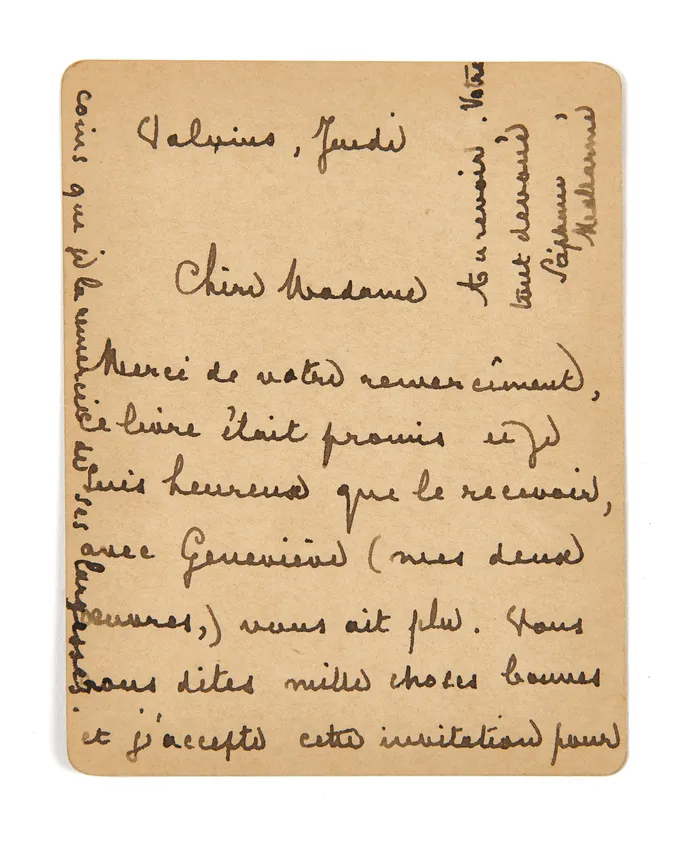 Valvins, Jeudi
Chère Madame
Merci de votre remercîment,
Ce livre était promis et je
suis heureux que le recevoir,
avec Geneviève (mes deux
œuvres,) vous ait plu. Vous
nous dites mille choses bonnes
et j'accepte cette invitation pour
coins que je la remercie de ses largesses.
Au revoir. Votre
tout dévoué
Stéphane
Mallarmé